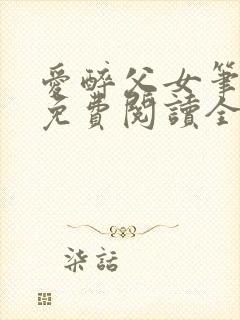 愛醉父女筆
免費閱讀全
柒話